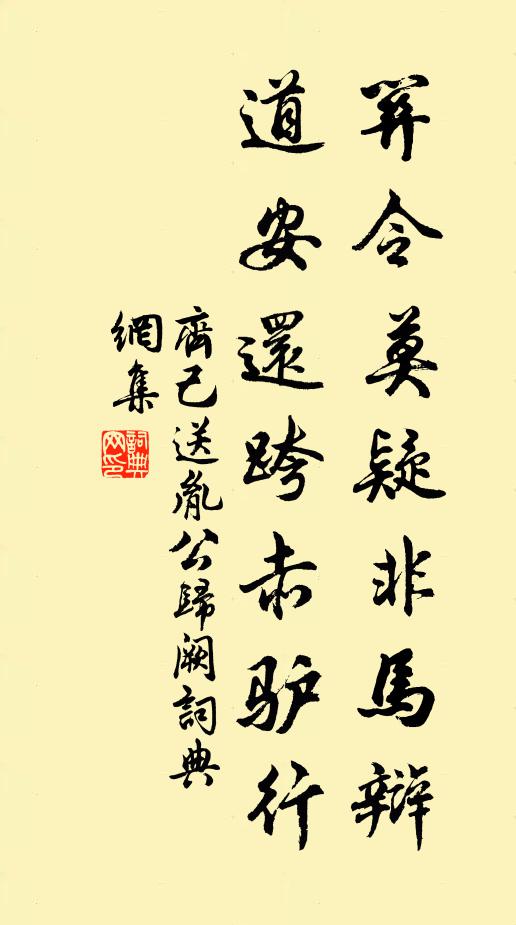 關令莫疑非馬辯
道安還跨赤驴行
齊己送胤公歸闕詞典
網集
詞典
网印